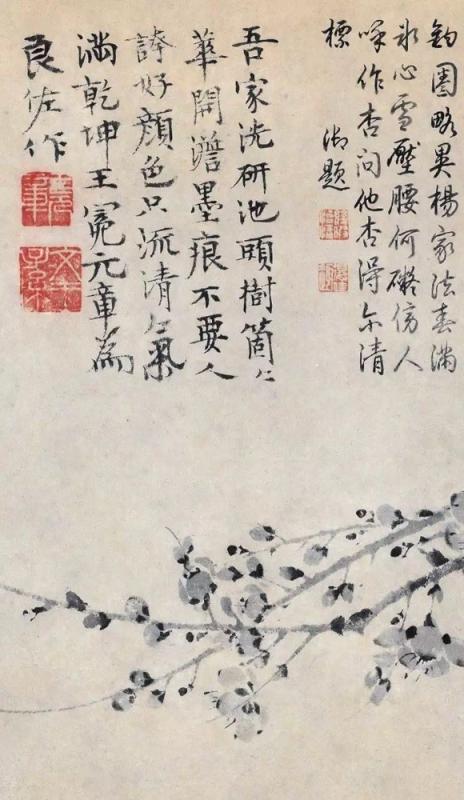 鈎圈略異楊家法春滿
冰心雪壓腰何礙傍人
喚作杏問他杏得尔清
標 御題
吾家洗研池頭樹箇〻
華開澹墨痕不要人
誇好顏色只流清氣
滿乾坤王冕元章為
良佐作
元章
文王子孫